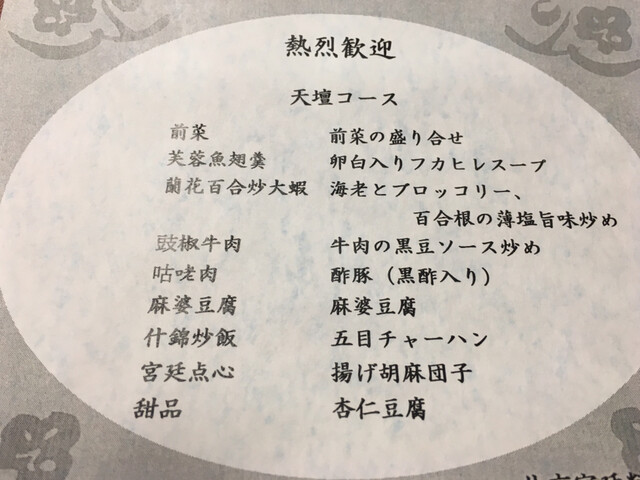 熱烈歓迎
天壇コース
前菜 前菜の盛り合せ
芙蓉魚翅羹 卵白入りフカヒレスープ
蘭花百合炒大蝦 海老とブロッコリー、
百合根の薄塩旨味炒め
豉椒牛肉 牛肉の黒豆ソース炒め
咕咾肉 酢豚（黒酢入り）
麻婆豆腐 麻婆豆腐
什錦炒飯 五目チャーハン
宮廷点心 揚げ胡麻団子
甜品 杏仁豆腐